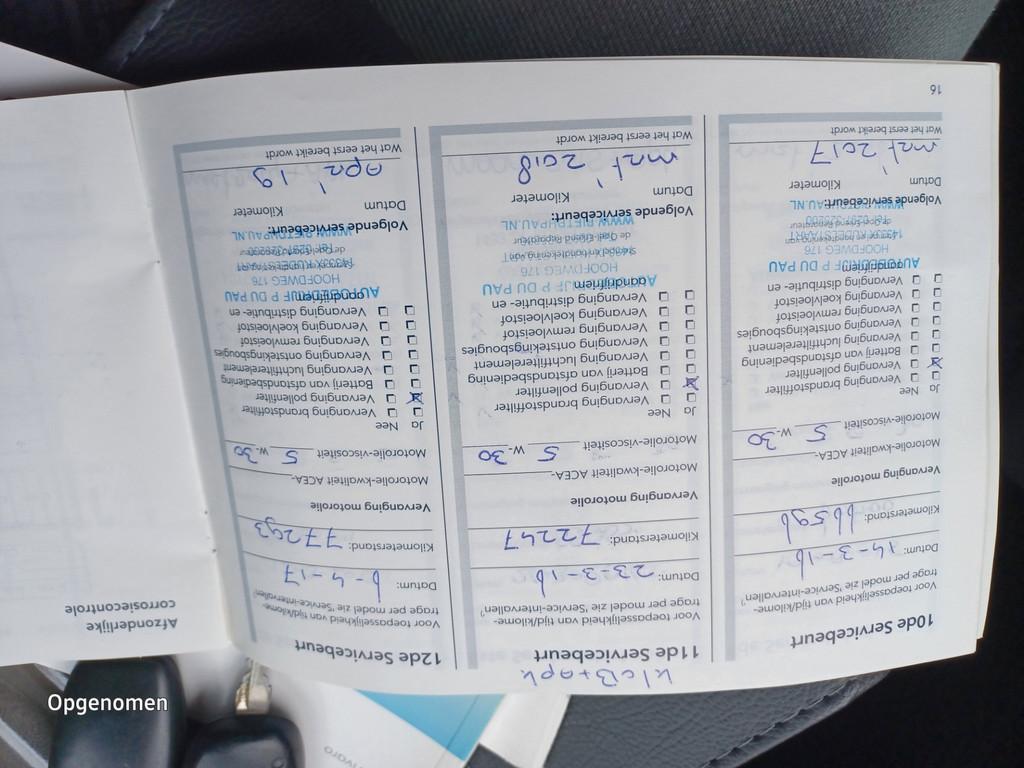 10de Servicebeurt
Voor toepasselijkheid van tijd/kilome-
trage per model zie 'Service-intervallen'
Datum: 14-3-16
Kilometerstand: 66596
Vervanging motorolie
Motorolie-kwaliteit ACEA-
Motorolie-viscositeit 5 W-30
Ja Nee
Vervanging brandstoffilter
Vervanging pollenfilter
Batterij van afstandsbediening
Vervanging luchtfilterelement
Vervanging ontstekingsbougies
Vervanging remvloeistof
Vervanging koelvloeistof
Vervanging distributie- en
aandrijfriem
AUTOBEDRIJF P DU PAU
HOOFDWEG 176
1433JX KUDELSTAART
WWW.PIETDUPAU.NL
Volgende servicebeurt:
Datum Kilometer
mrt' 2017
Wat het eerst bereikt wordt
16
K/cB+apk
11de Servicebeurt
Voor toepasselijkheid van tijd/kilome-
trage per model zie 'Service-intervallen'
Datum: 23-3-16
Kilometerstand: 72247
Vervanging motorolie
Motorolie-kwaliteit ACEA-
Motorolie-viscositeit 5 W-30
Ja Nee
Vervanging brandstoffilter
Vervanging pollenfilter
Batterij van afstandsbediening
Vervanging luchtfilterelement
Vervanging ontstekingsbougies
Vervanging remvloeistof
Vervanging koelvloeistof
Vervanging distributie- en
aandrijfriem
AUTOBEDRIJF P DU PAU
HOOFDWEG 176
de Opel-Erkend Reparateur
WWW.PIETDUPAU.NL
Volgende servicebeurt:
Datum Kilometer
mrt' 2018
Wat het eerst bereikt wordt
12de Servicebeurt
Voor toepasselijkheid van tijd/kilome-
trage per model zie 'Service-intervallen'
Datum: 6-4-17
Kilometerstand: 77293
Vervanging motorolie
Motorolie-kwaliteit ACEA-
Motorolie-viscositeit 5 W-30
Ja Nee
Vervanging brandstoffilter
Vervanging pollenfilter
Batterij van afstandsbediening
Vervanging luchtfilterelement
Vervanging ontstekingsbougies
Vervanging remvloeistof
Vervanging koelvloeistof
Vervanging distributie- en
aandrijfriem
AUTOBEDRIJF P DU PAU
HOOFDWEG 176
1433JX KUDELSTAART
WWW.PIETDUPAU.NL
Volgende servicebeurt:
Datum Kilometer
apr' 19
Wat het eerst bereikt wordt
Afzonderlijke
corrosiecontrole
Opgenomen